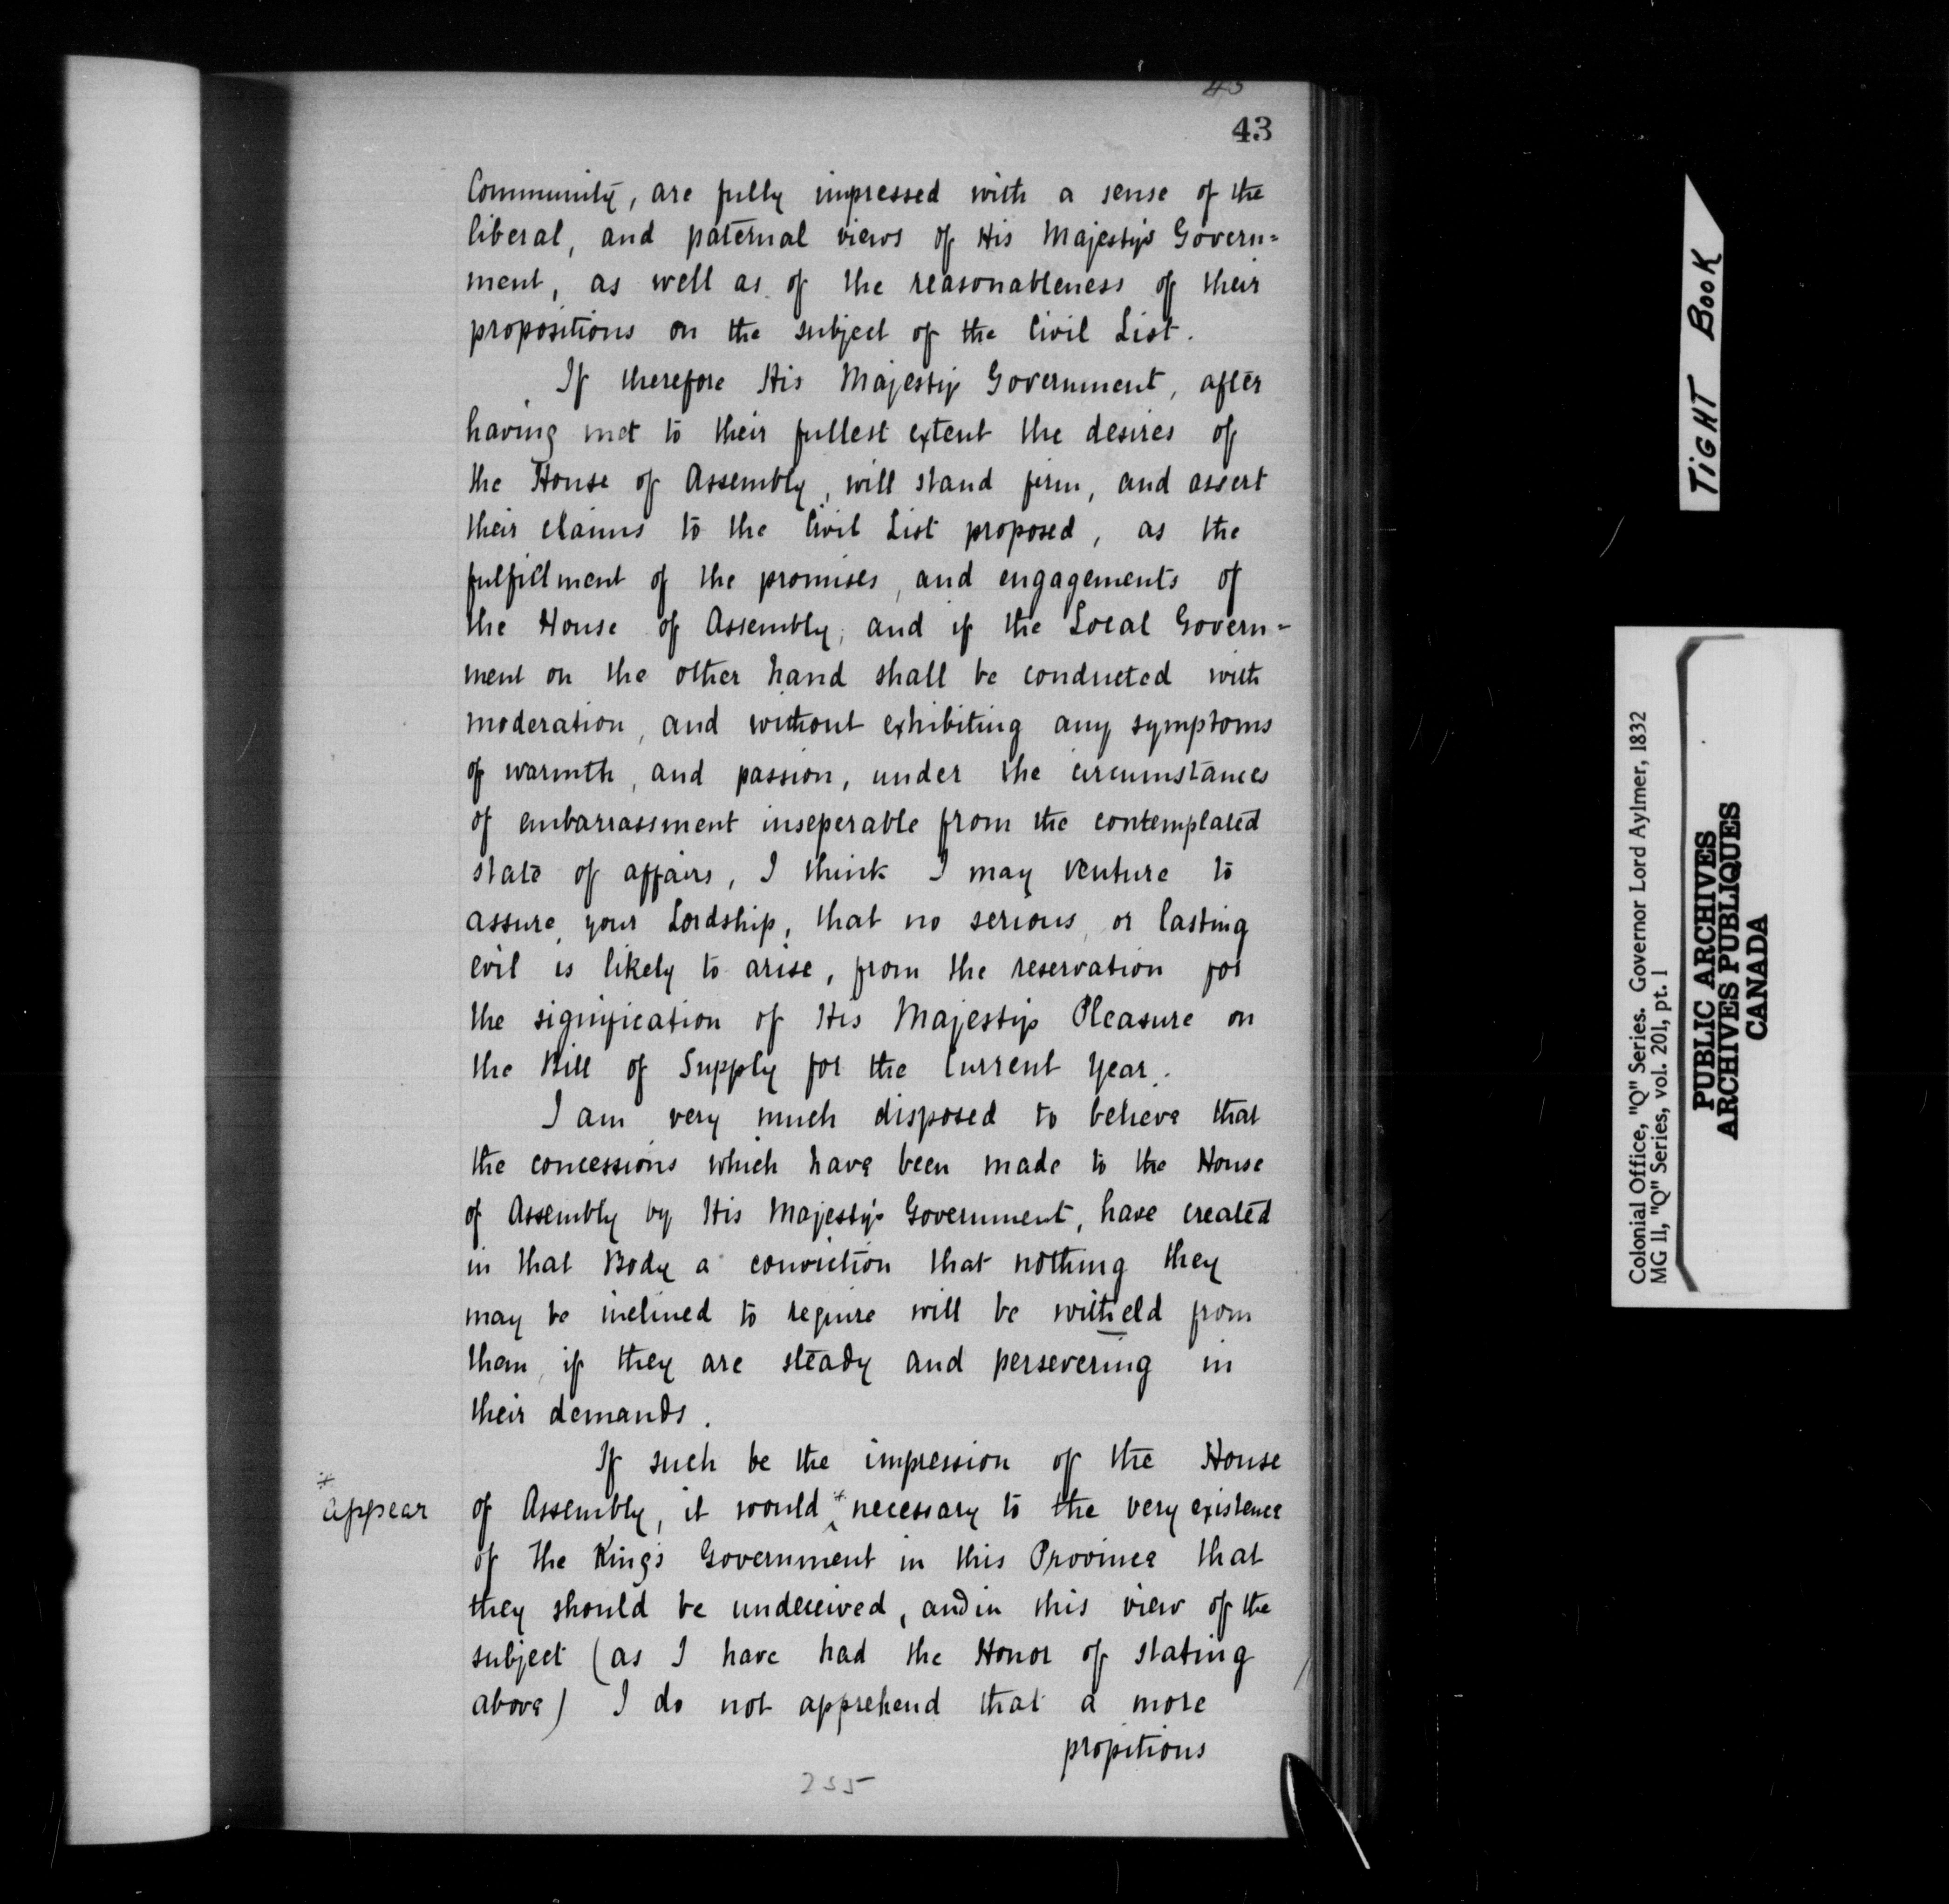 43
43
Community, are fully impressed with a sense of the
liberal, and paternal views of His Majesty's Govern=
ment, as well as of the reasonableness of their
propositions on the subject of the Civil List.
If therefore His Majesty's Government, after
having met to their fullest extent the desires of
the House of Assembly, will stand firm, and assert
their claims to the Civil List proposed, as the
fulfillment of the promises, and engagements of
the House of Assembly, and if the Local Govern=
ment on the other hand shall be conducted with
moderation, and without exhibiting any symptoms
of warmth, and passion, under the circumstances
of embarrassment inseperable from the contemplated
state of affairs, I think I may venture to
assure your Lordship, that no serious, or lasting
evil is likely to arise, from the reservation for
the signification of His Majesty's Pleasure on
the Bill of Supply for the Current Year.
I am very much disposed to believe that
the concessions which have been made to the House
of Assembly by His Majesty's Government, have created
in that Body a conviction that nothing they
may be inclined to require will be witheld from
them, if they are steady and persevering in
their demands.
If such be the impression of the House
* appear
of Assembly, it would * necessary to the very existence
of the King's Government in this Province that
they should be undeceived, and in this view of the
subject (as I have had the Honor of stating
above) I do not apprehend that a more
propitious
255
TIGHT BOOK
Colonial Office, "Q" Series. Governor Lord Aylmer, 1832
MG 11, "Q" Series, vol. 201, pt. 1
PUBLIC ARCHIVES
ARCHIVES PUBLIQUES
CANADA